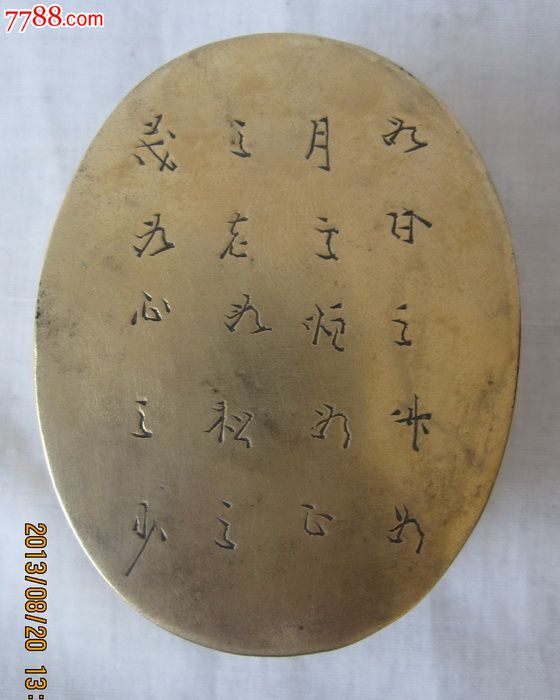 如日之升如
月之恒如山
之老如松之
茂如心之少
7788.com
2013/08/20 13: